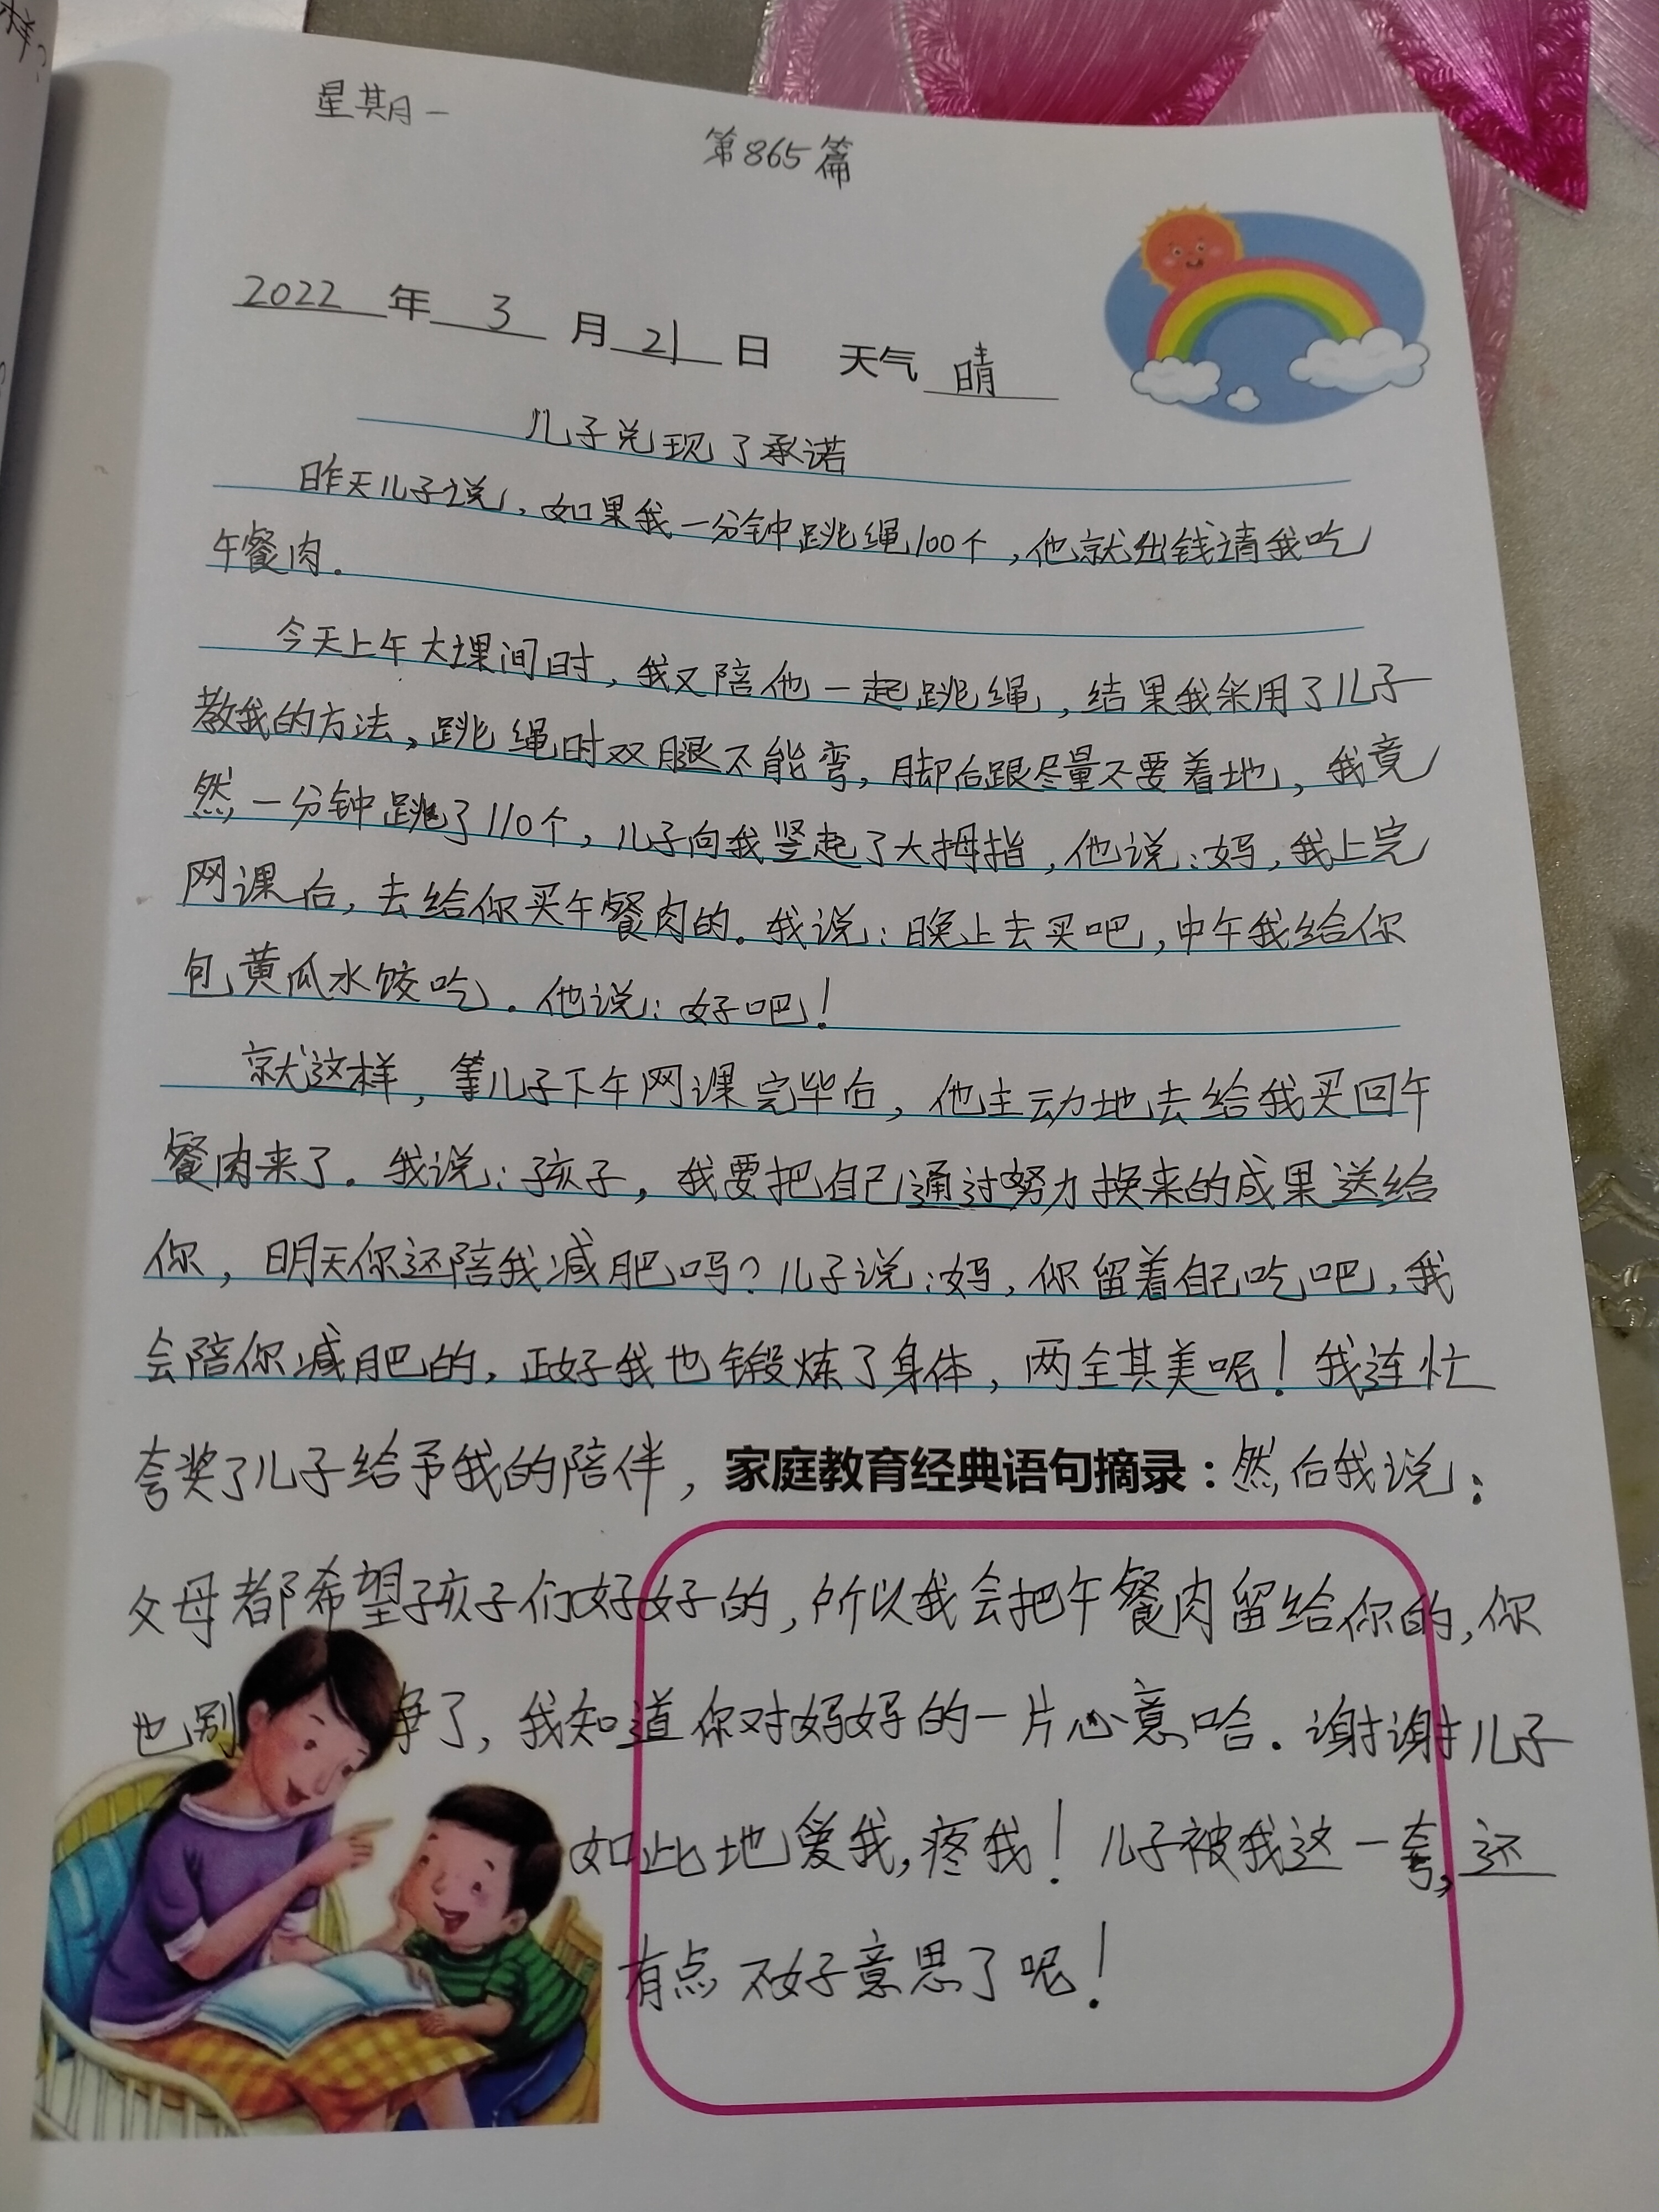 星期一
第865篇
2022年3月21日 天气晴
儿子兑现了承诺
昨天儿子说，如果我一分钟跳绳100个，他就出钱请我吃
午餐肉。
今天上午大课间时，我又陪他一起跳绳，结果我采用了儿子
教我的方法，跳绳时双腿不能弯，脚后跟尽量不要着地，我竟
然一分钟跳了110个，儿子向我竖起了大拇指，他说：妈，我上完
网课后，去给你买午餐肉的。我说：晚上去买吧，中午我给你
包黄瓜水饺吃。他说：好吧！
就这样，等儿子下午网课完毕后，他主动地去给我买回午
餐肉来了。我说：孩子，我要把自己通过努力换来的成果送给
你，明天你还陪我减肥吗？儿子说：妈，你留着自己吃吧，我
会陪你减肥的，正好我也锻炼了身体，两全其美呢！我连忙
夸奖了儿子给予我的陪伴，家庭教育经典语句摘录：然后我说：
父母都希望孩子们好好的，所以我会把午餐肉留给你的，你
也别争了，我知道你对妈妈的一片心意哈。谢谢儿子
如此地爱我，疼我！儿子被我这一夸，还
有点不好意思了呢！